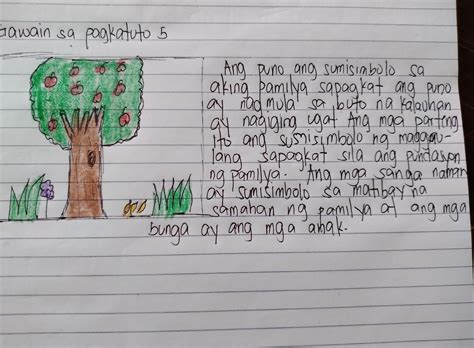 Gawain sa pagkatuto 5
Ang puno ang sumisimbolo sa
aking pamilya sapagkat ang puno
ay nagmula sa buto na kalauhan
ay nagiging ugat Ang mga parteng
ito ang sumisimbolo ng maggu
lang sapagkat sila ang pundasyon
ng pamilya. Ang mga sanga naman
ay sumisimbolo sa matibay na
samahan ng pamilya at ang mga
bunga ay ang mga anak.